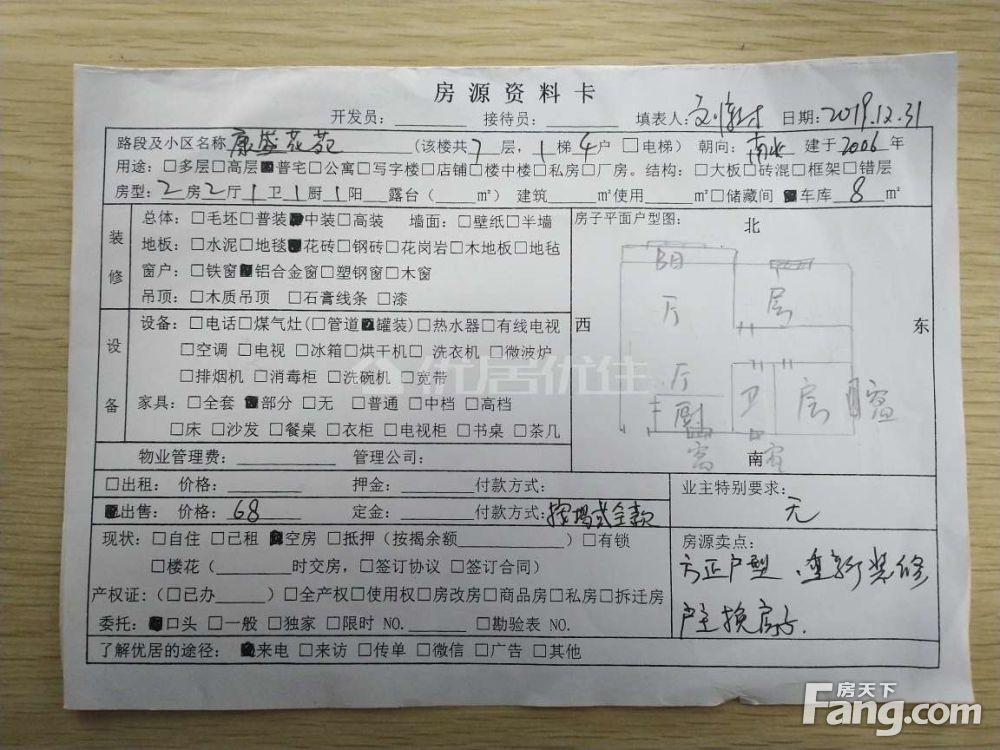 房源资料卡
开发员：________ 接待员：________ 填表人： 日期：2019.12.31
路段及小区名称 康盛花苑 (该楼共7层，1梯4户 □电梯) 朝向：南北 建于2006年
用途：□多层□高层■普宅□公寓□写字楼□店铺□楼中楼□私房□厂房。结构：□大板□砖混■框架□错层
房型：2房2厅1卫1厨1阳 露台（____㎡）建筑____㎡使用____㎡□储藏间 ■车库 8 ㎡
装修
总体：□毛坯□普装■中装□高装 墙面：□壁纸□半墙
地板：□水泥□地毯■花砖□钢砖□花岗岩□木地板□地毡
窗户：□铁窗■铝合金窗□塑钢窗□木窗
吊顶：□木质吊顶 □石膏线条□漆
设备
设备：□电话□煤气灶(□管道■罐装)□热水器□有线电视
□空调 □电视 □冰箱□烘干机□ 洗衣机□微波炉
□排烟机□消毒柜 □洗碗机□宽带
家具：□全套 ■部分 □无 □普通 □中档 □高档
□床 □沙发 □餐桌 □衣柜 □电视柜 □书桌 □茶几
物业管理费：________ 管理公司：
房子平面户型图：
北
阳
厅 房
西 东
厅
厨 卫 房 窗
窗 南 窗
优居优住
□出租： 价格：______ 押金：______付款方式：
■出售： 价格：68 定金：______付款方式：按揭或全款
业主特别要求：
无
现状：□自住 □已租 ■空房 □抵押（按揭余额________）□有锁
□楼花（______时交房，□签订协议 □签订合同）
产权证：（□已办______）□全产权□使用权□房改房□商品房□私房□拆迁房
委托：■口头 □一般 □独家 □限时 NO.______ □勘验表 NO.
房源卖点：
方正户型、重新装修
户主换房子.
了解优居的途径： ■来电 □来访 □传单 □微信 □广告 □其他
房天下
Fang.com